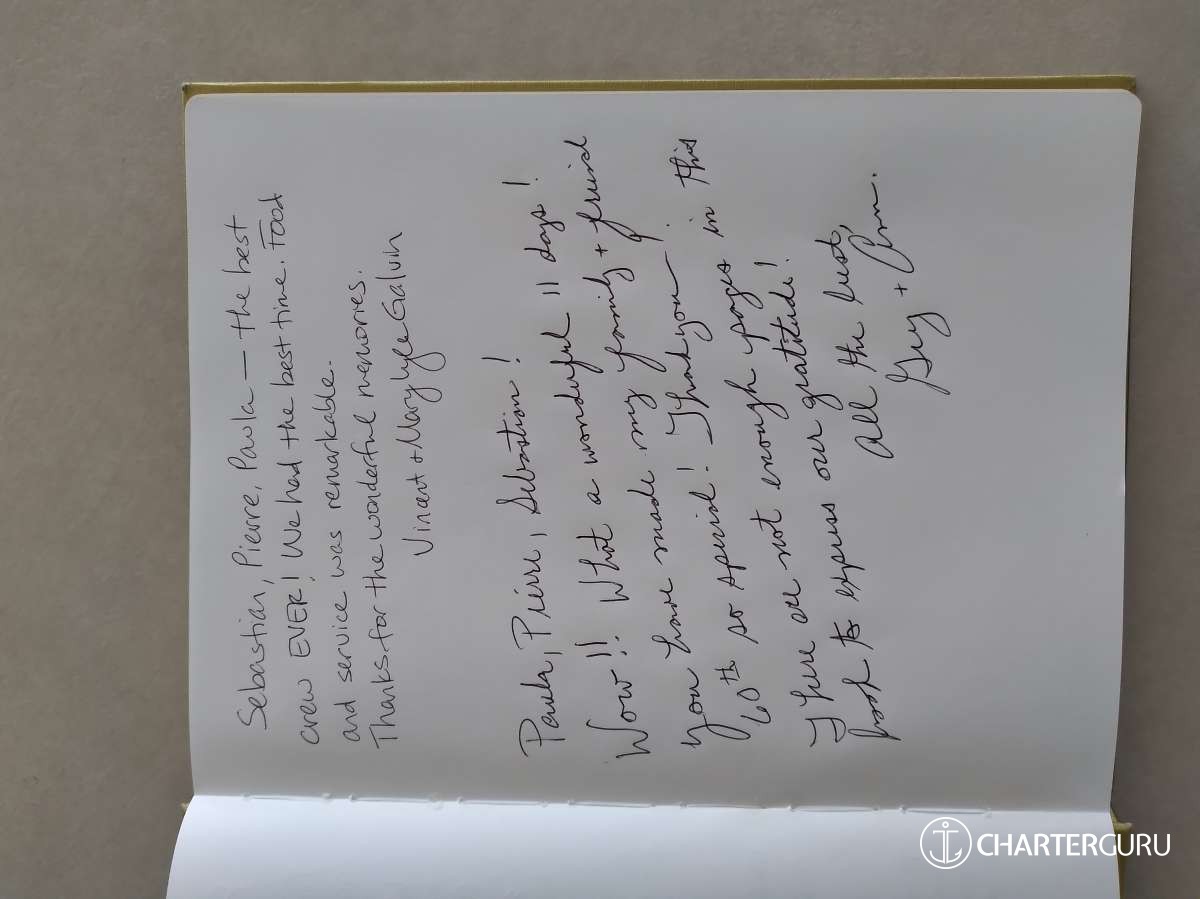 Sebastian, Pierre, Paula — the best
crew EVER! We had the best time. Food
and service was remarkable.
Thanks for the wonderful memories.
Vincent + Mary Lyle Galvin
Paula, Pierre, Sebastian!
Wow!! What a wonderful 11 days!
you have made my family + friend
60th so special! Thank you!
There are not enough pages in this
book to express our gratitude!
All the best,
+ Ann.
CHARTERGURU